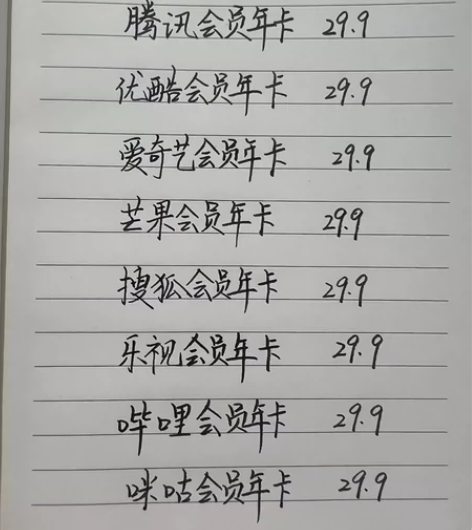 腾讯会员年卡 29.9
优酷会员年卡 29.9
爱奇艺会员年卡 29.9
芒果会员年卡 29.9
搜狐会员年卡 29.9
乐视会员年卡 29.9
哔哩会员年卡 29.9
咪咕会员年卡 29.9